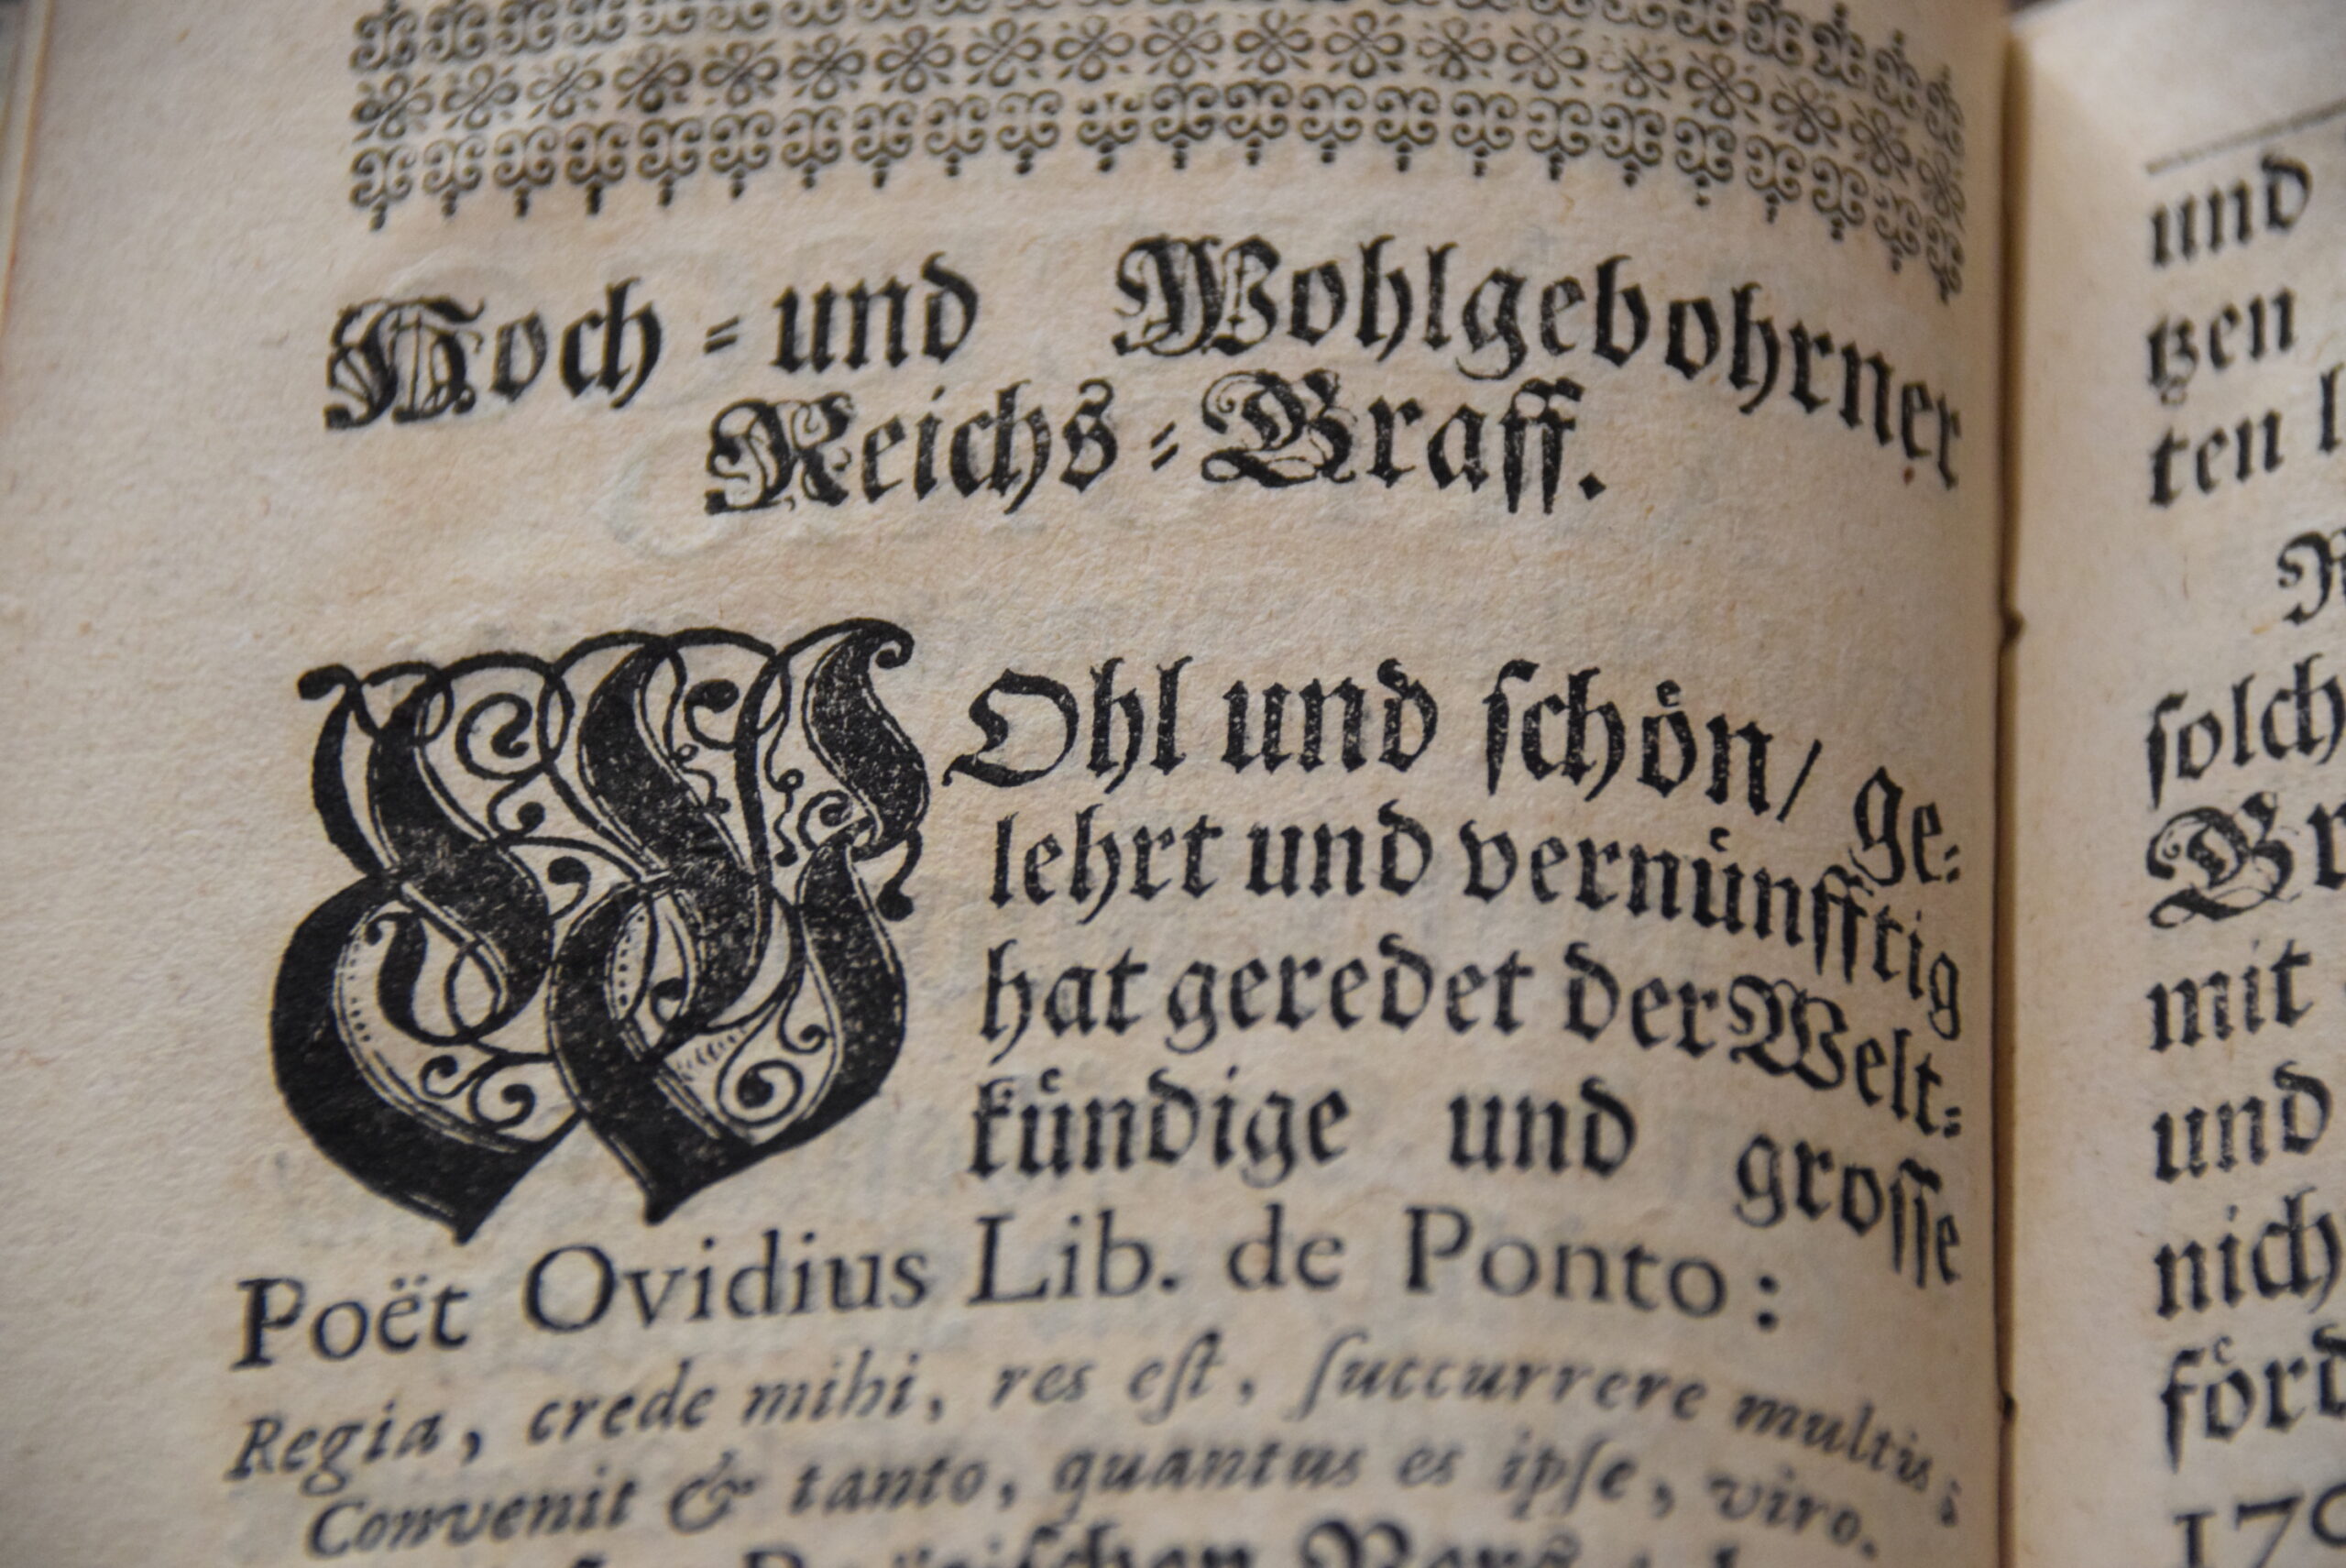 Hoch-und Wohlgebohrner
Reichs-Graff.
WOhl und ſchoͤn/ ge-
lehrt und vernuͤnfftig
hat geredet der Welt-
kuͤndige und groſſe
Poët Ovidius Lib. de Ponto:
Regia, crede mihi, res eſt, ſuccurrere multis;
Convenit & tanto, quantus es ipſe, viro.
und
tzen
ten
ſolch
mit
und
nich
foͤrd
170